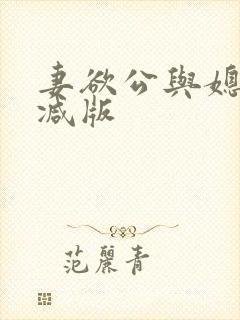 妻欲公與媳
减版
范麗青